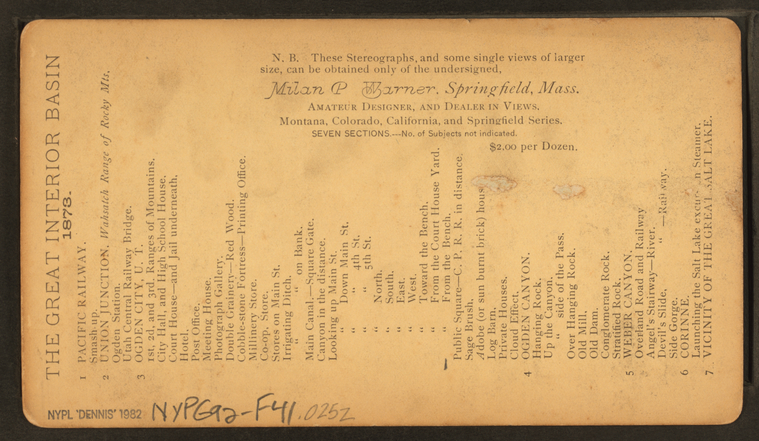 N. B. These Stereographs, and some single views of larger
size, can be obtained only of the undersigned,
Milan P. Warner, Springfield, Mass.
AMATEUR DESIGNER, AND DEALER IN VIEWS,
Montana, Colorado, California, and Springfield Series.
SEVEN SECTIONS.—No. of Subjects not indicated.
$2.00 per Dozen.
THE GREAT INTERIOR BASIN
1878.
1 PACIFIC RAILWAY.
Smash-up.
2 UNION JUNCTION, Wahsatch Range of Rocky Mts.
Ogden Station.
Utah Central Railway Bridge.
3 OGDEN CITY, U. T.
1st, 2d, and 3rd, Ranges of Mountains.
City Hall, and High School House.
Court House—and Jail underneath.
Hotel.
Post Office.
Meeting House.
Photograph Gallery.
Double Grainery—Red Wood.
Cobble-stone Fortress—Printing Office.
Milliner Store.
Co-op. Store.
Stores on Main St.
Irrigating Ditch.
" " on Bank.
Main Canal,—Square Gate.
Canyon in the distance.
Looking up Main St.
" Down Main St.
" " 4th St.
" " 5th St.
" North.
" South.
" East.
" West.
" Toward the Bench.
" From the Court House Yard.
" From the Bench.
Public Square—C. P. R. R. in distance.
Sage Brush.
Adobe (or sun burnt brick) hous
Log Barn.
Private Houses.
Cloud Effect.
4 OGDEN CANYON.
Hanging Rock.
Up the Canyon.
" side of the Pass.
Over Hanging Rock
Old Mill.
Old Dam.
Conglomerate Rock.
Stratified Rock.
5 WEBER CANYON.
Overland Road and Railway
Angel's Stairway—River.
Devil's Slide.
" " —Railway.
Side Gorge.
6 CORINNE.
Launching the Salt Lake excur n Steamer.
7 VICINITY OF THE GREAT SALT LAKE.
NYPL 'DENNIS' 1982 NYPG92-F41.0252